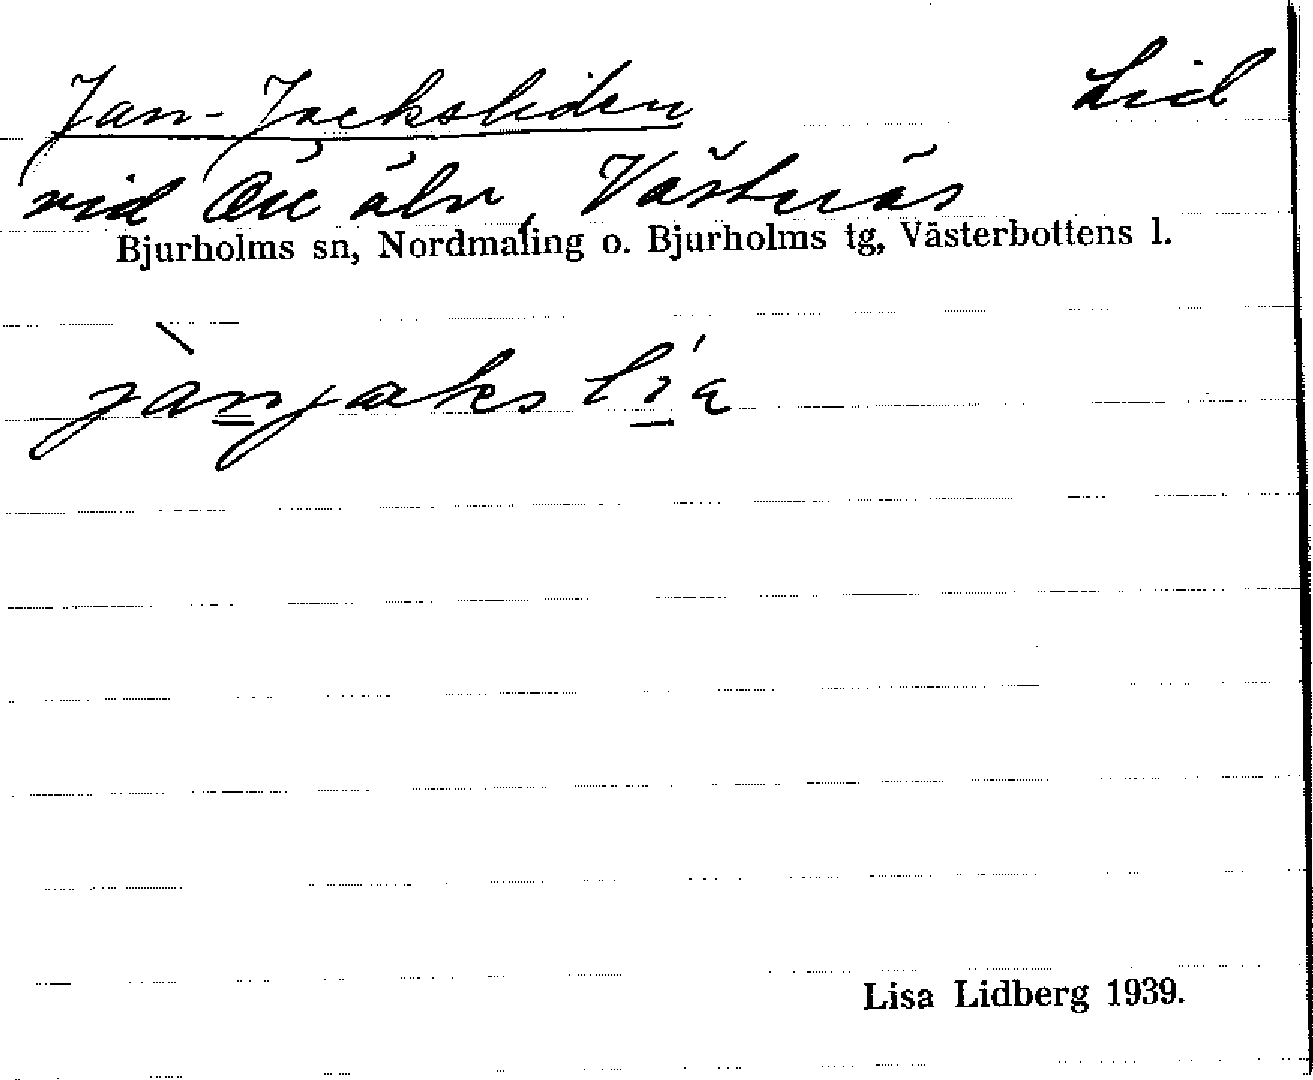 Jan-Jacksliden Lid
vid Öre älv, Västnäs
Bjurholms sn, Nordmaling o. Bjurholms tg, Västerbottens l.
jànjaks lía
Lisa Lidberg 1939.